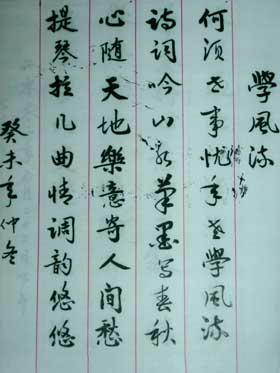 學風流
何須世事忧年老學風流
诗词吟山水筆墨写春秋
心随天地樂意寄人间愁
提琴拉几曲情调韵悠悠
癸未年仲冬